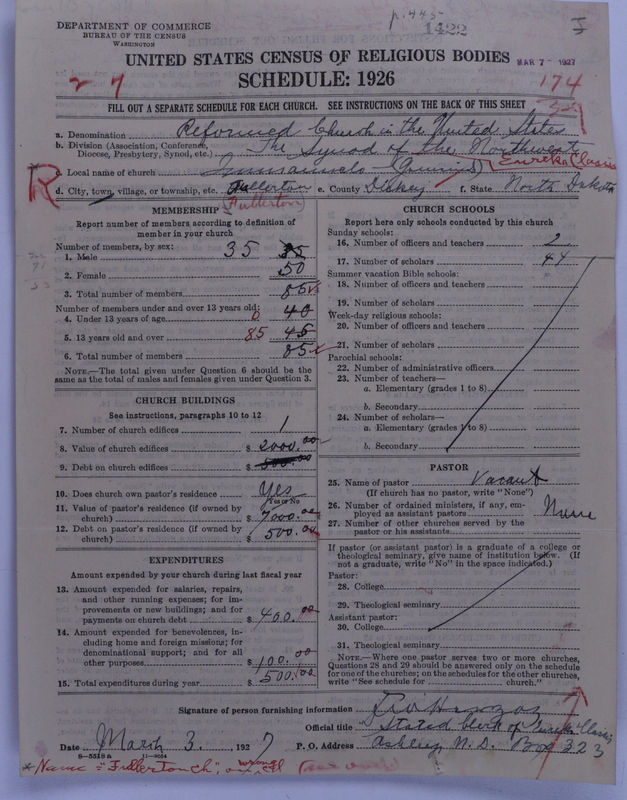 p. 445
1422
I
DEPARTMENT OF COMMERCE
BUREAU OF THE CENSUS
WASHINGTON
UNITED STATES CENSUS OF RELIGIOUS BODIES
MAR 7 - 1927
SCHEDULE: 1926
174
FILL OUT A SEPARATE SCHEDULE FOR EACH CHURCH. SEE INSTRUCTIONS ON THE BACK OF THIS SHEET
a. Denomination Reformed Church in the United States
b. Division (Association, Conference, Diocese, Presbytery, Synod, etc.) The Synod of the Northwest
Eureka Classis
c. Local name of church
R
d. City, town, village, or township, etc. Fullerton e. County Dickey f. State North Dakota
Fullerton
MEMBERSHIP
Report number of members according to definition of member in your church
Number of members, by sex:
1. Male 35 35
2. Female 50
3. Total number of members 85
Number of members under and over 13 years old:
4. Under 13 years of age 0 40
5. 13 years old and over 85 45
6. Total number of members 85
NOTE.—The total given under Question 6 should be the same as the total of males and females given under Question 3.
CHURCH BUILDINGS
See instructions, paragraphs 10 to 12
7. Number of church edifices 1
8. Value of church edifices $ 2000.00
9. Debt on church edifices $ 500.00
10. Does church own pastor's residence Yes
Yes or No
11. Value of pastor's residence (if owned by church) $ 7000.00
12. Debt on pastor's residence (if owned by church) $ 500.00
EXPENDITURES
Amount expended by your church during last fiscal year
13. Amount expended for salaries, repairs, and other running expenses; for improvements or new buildings; and for payments on church debt $ 400.00
14. Amount expended for benevolences, including home and foreign missions; for denominational support; and for all other purposes $ 100.00
15. Total expenditures during year $ 500.00
CHURCH SCHOOLS
Report here only schools conducted by this church
Sunday schools:
16. Number of officers and teachers 2
17. Number of scholars 44
Summer vacation Bible schools:
18. Number of officers and teachers
19. Number of scholars
Week-day religious schools:
20. Number of officers and teachers
21. Number of scholars
Parochial schools:
22. Number of administrative officers
23. Number of teachers—
a. Elementary (grades 1 to 8)
b. Secondary
24. Number of scholars—
a. Elementary (grades 1 to 8)
b. Secondary
PASTOR
25. Name of pastor Vacant
(If church has no pastor, write "None")
26. Number of ordained ministers, if any, employed as assistant pastors None
27. Number of other churches served by the pastor or his assistants
If pastor (or assistant pastor) is a graduate of a college or theological seminary, give name of institution below. (If not a graduate, write "No" in the space indicated.)
Pastor:
28. College
29. Theological seminary
Assistant pastor:
30. College
31. Theological seminary
NOTE.—Where one pastor serves two or more churches, Questions 28 and 29 should be answered only on the schedule for one of the churches; on the schedules for the other churches, write "See schedule for church."
Signature of person furnishing information
Official title Stated Clerk of Eureka Classis
Date March 3, 1927 P. O. Address Ashley N. D. Box 323
8—5518 a
* Name = "Fullerton ch",